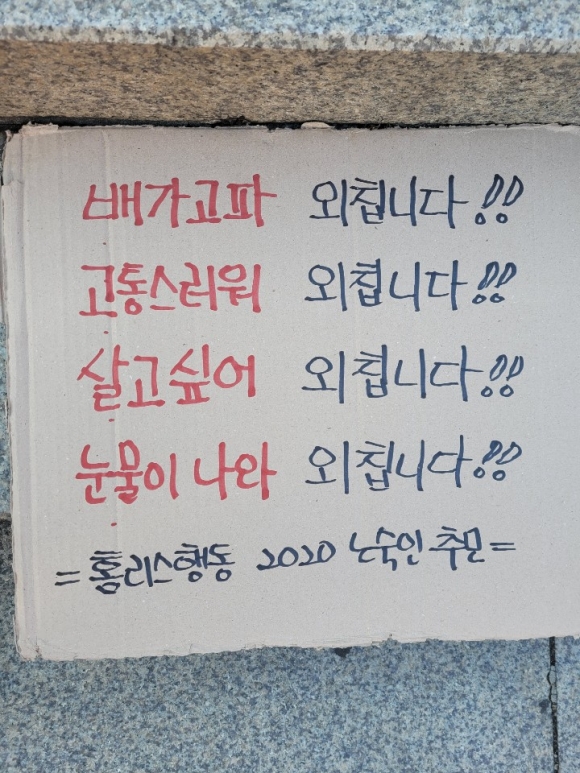 배가고파 외칩니다!!
고통스러워 외칩니다!!
살고싶어 외칩니다!!
눈물이 나와 외칩니다!!
=홈리스행동 2020 노숙인 추모=